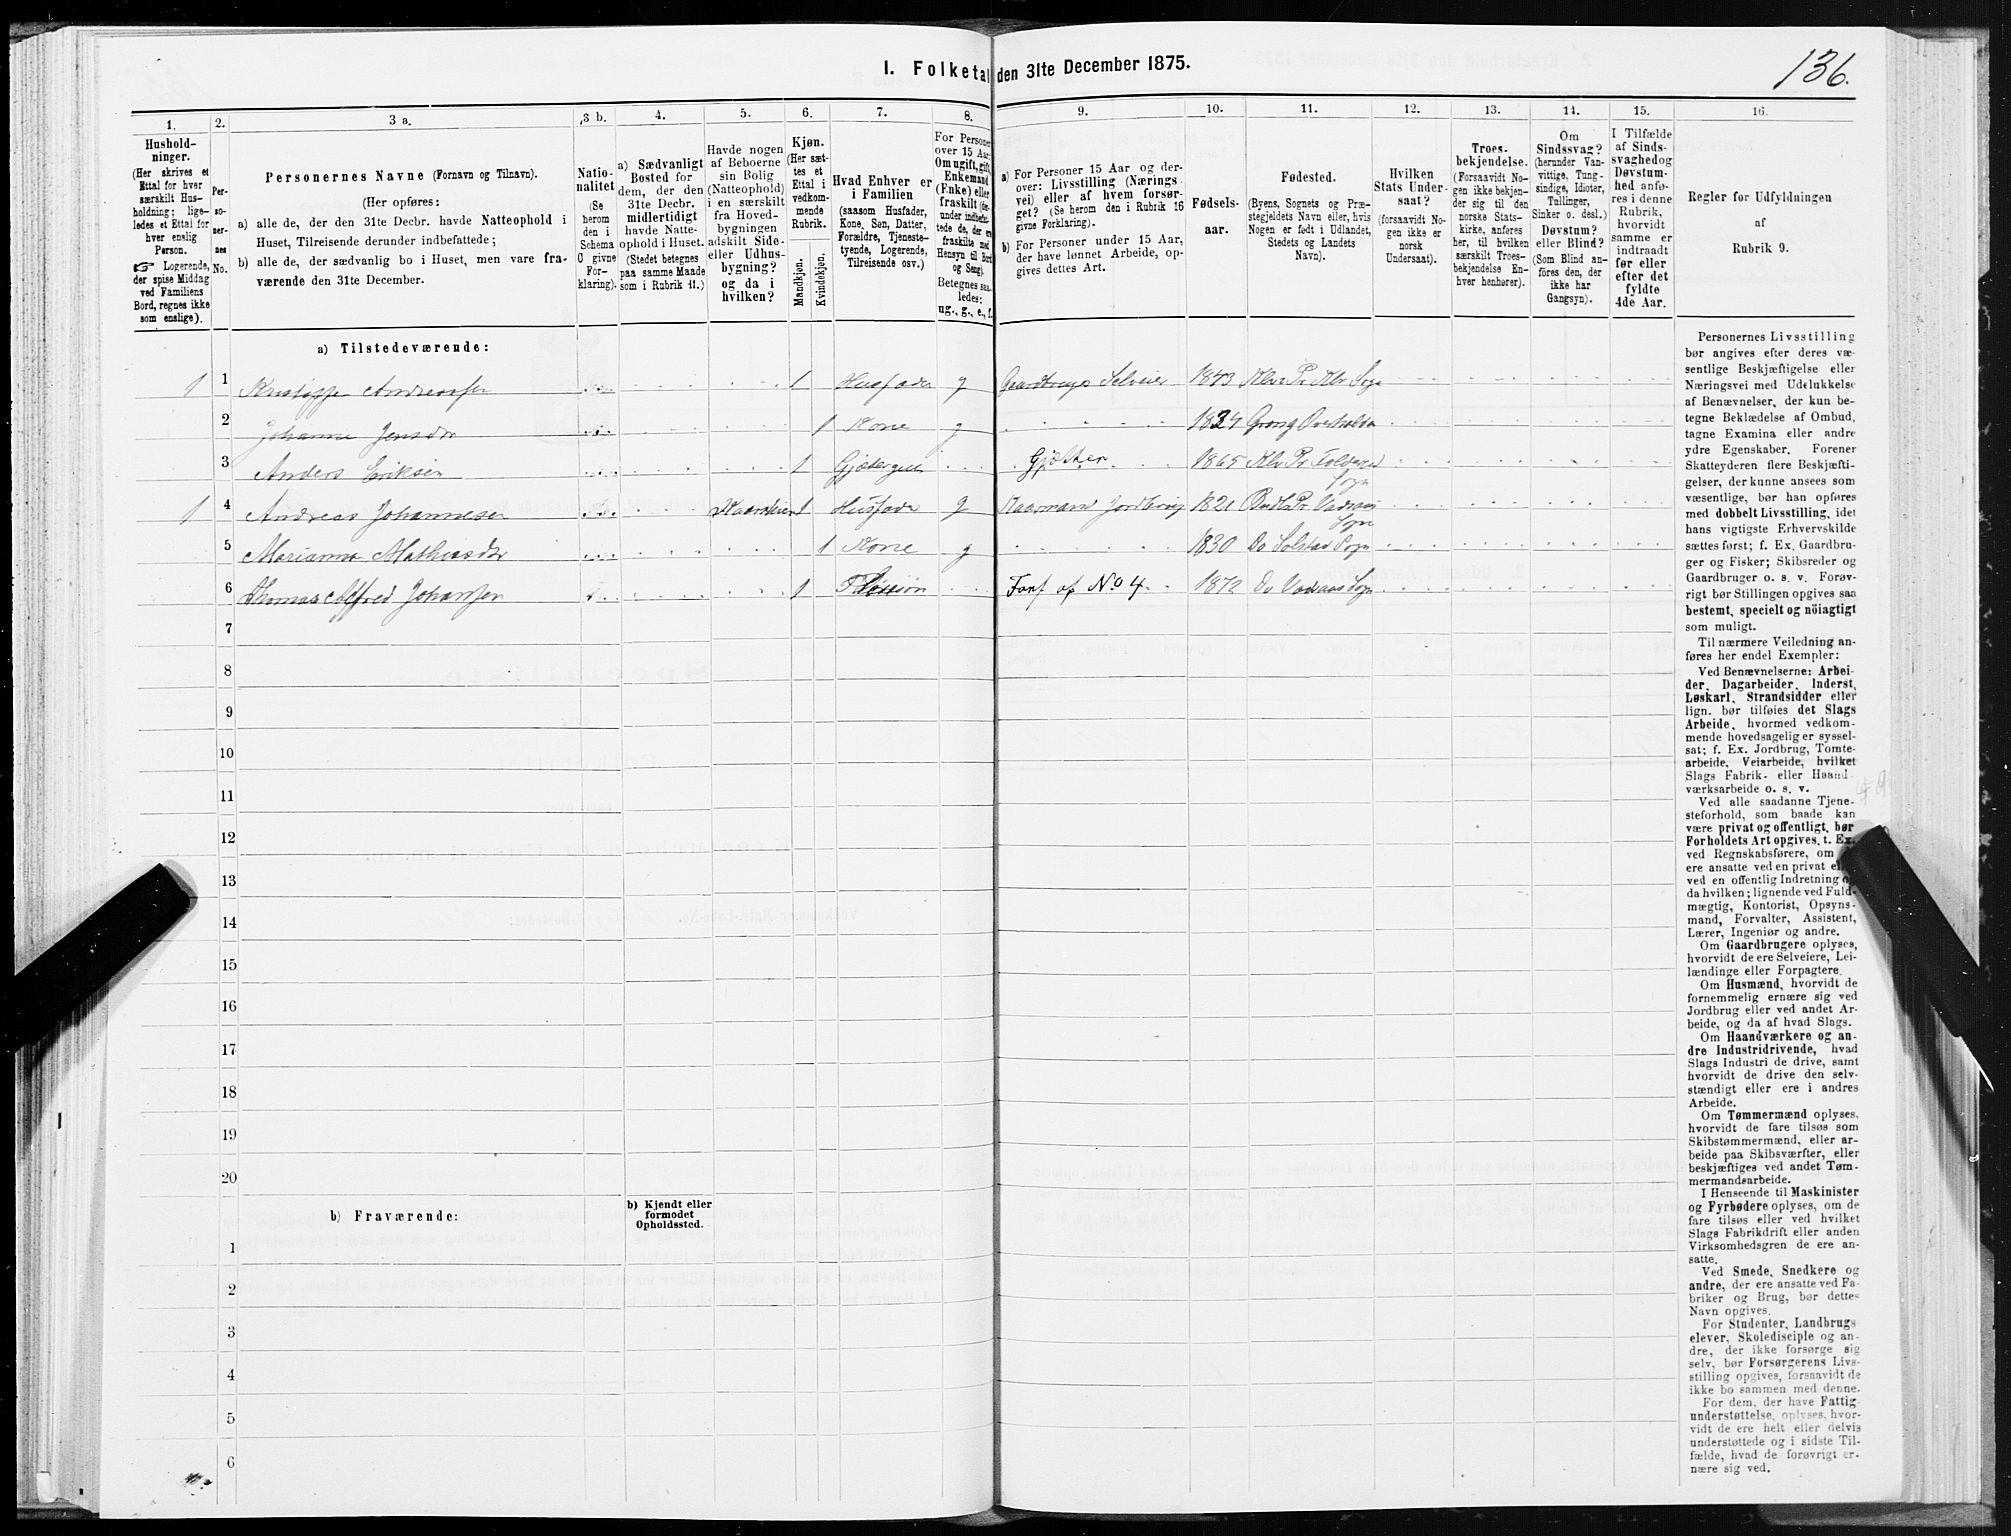 136.
I. Folketal den 31te December 1875.
1.
Hushold-
ninger.
(Her skrives et
Ettal for hver
særskilt Hus-
holdning; lige-
ledes et Ettal for
hver enslig
Person.
☞ Logerende,
der spise Middag
ved Familiens
Bord, regnes ikke
som enslige).
2.
Per-
so-
ner-
nes
No.
3 a.
Personernes Navne (Fornavn og Tilnavn).
(Her opføres:
a) alle de, der den 31te Decbr. havde Natteophold i
Huset, Tilreisende derunder indbefattede;
b) alle de, der sædvanlig bo i Huset, men vare fra-
værende den 31te December.
3 b.
Natio-
nalitet
(Se
herom
den i
Schema
C givne
For-
klaring).
4.
a) Sædvanligt
Bosted for
dem, der den
31te Decbr.
midlertidigt
havde Natte-
ophold i Huset.
(Stedet betegnes
paa samme Maade
som i Rubrik 11.)
5.
Havde nogen
af Beboerne
sin Bolig
(Natteophold)
i en særskilt
fra Hoved-
bygningen
adskilt Side-
eller Udhus-
bygning?
og da i
hvilken?
6.
Kjøn.
(Her sæt-
tes et
Ettal i
vedkom-
mende
Rubrik.
Mandkjøn.
Kvindekjøn.
7.
Hvad Enhver er
i Familien
(saasom Husfader,
Kone, Søn, Datter,
Forældre, Tjeneste-
tyende, Logerende,
Tilreisende osv.)
8.
For Personer
over 15 Aar:
Om ugift, gift,
Enkemand
(Enke) eller
fraskilt (der-
under indbefat-
tede de, der ere
fraskilte med
Hensyn til Bord
og Seng).
Betegnes saa-
ledes:
ug., g., e., f.
9.
a) For Personer 15 Aar og der-
over: Livsstilling (Nærings-
vei) eller af hvem forsør-
get? (Se herom den i Rubrik 16
givne Forklaring).
b) For Personer under 15 Aar,
der have lønnet Arbeide, op-
gives dettes Art.
10.
Fødsels-
aar.
11.
Fødested.
(Byens, Sognets og Præ-
stegjeldets Navn eller, hvis
Nogen er født i Udlandet,
Stedets og Landets
Navn).
12.
Hvilken
Stats Under-
saat?
(forsaavidt No-
gen ikke er
norsk
Undersaat).
13.
Troes-
bekjendelse.
(Forsaavidt No-
gen ikke bekjen-
der sig til den
norske Stats-
kirke, anføres
her, til hvilken
særskilt Troes-
bekjendelse En-
hver henhører).
14.
Om
Sindssvag?
(herunder Van-
vittige, Tung-
sindige, Idioter,
Tullinger,
Sinker o. desl.)
Døvstum?
eller Blind?
(Som Blind an-
føres den, der
ikke har
Gangsyn).
15.
I Tilfælde
af Sinds-
svaghed og
Døvstum-
hed anfø-
res i denne
Rubrik,
hvorvidt
samme er
indtraadt
før eller
efter det
fyldte
4de Aar.
16.
Regler for Udfyldningen
af
Rubrik 9.
a) Tilstedeværende:
1 1 Andreassen 1 Husfader g Gaardbruger Selveier 1843
2 Johanne Jensdr 1 Kone g 1824 Grong
3 Anders Eriksen 1 Gjætergut Gjætter 1865
1 4 Andreas Johannesen 1 Husfader g Kaarmand Jordbrug 1821
5 Marianna Mathiasdr 1 Kone g 1830 Do Solstad Sogn
6 Thomas Alfred Johansen 1 Fors. af No 4. 1872 Do
7
8
9
10
11
12
13
14
15
16
17
18
19
20
b) Fraværende:
b) Kjendt eller
formodet
Opholdssted.
1
2
3
4
5
6
Personernes Livsstilling
bør angives efter deres væ-
sentlige Beskjæftigelse eller
Næringsvei med Udelukkelse
af Benævnelser, der kun be-
tegne Beklædelse af Ombud,
tagne Examina eller andre
ydre Egenskaber. Forener
Skatteyderen flere Beskjæfti-
gelser, der kunne ansees som
væsentlige, bør han opføres
med dobbelt Livsstilling, idet
hans vigtigste Erhvervskilde
sættes først; f. Ex. Gaardbru-
ger og Fisker; Skibsreder og
Gaardbruger o. s. v. Forøv-
rigt bør Stillingen opgives saa
bestemt, specielt og nöiagtigt
som muligt.
Til nærmere Veiledning an-
føres her endel Exempler:
Ved Benævnelserne: Arbei-
der, Dagarbeider, Inderst,
Løskarl, Strandsidder eller
lign. bør tilføies det Slags
Arbeide, hvormed vedkom-
mende hovedsagelig er syssel-
sat; f. Ex. Jordbrug, Tomte-
arbeide, Veiarbeide, hvilket
Slags Fabrik- eller Haand-
værksarbeide o. s. v.
Ved alle saadanne Tjene-
steforhold, som baade kan
være privat og offentligt, bør
Forholdets Art opgives, t. Ex.
ved Regnskabsførere, om
ere ansatte ved en privat
ved en offentlig Indretning
da hvilken; lignende ved Fuld-
mægtig, Kontorist, Opsyns-
mand, Forvalter, Assistent,
Lærer, Ingeniør og andre.
Om Gaardbrugere oplyses,
hvorvidt de ere Selveiere, Lei-
lændinge eller Forpagtere.
Om Husmænd, hvorvidt de
fornemmelig ernære sig ved
Jordbrug eller ved andet Ar-
beide, og da af hvad Slags.
Om Haandværkere og an-
dre Industridrivende, hvad
Slags Industri de drive, samt
hvorvidt de drive den selv-
stændigt eller ere i andres
Arbeide.
Om Tømmermænd oplyses,
hvorvidt de fare tilsøs som
Skibstømmermænd, eller ar-
beide paa Skibsværfter, eller
beskjæftiges ved andet Tøm-
mermandsarbeide.
I Henseende til Maskinister
og Fyrbødere oplyses, om de
fare tilsøs eller ved hvilket
Slags Fabrikdrift eller anden
Virksomhedsgren de ere an-
satte.
Ved Smede, Snedkere og
andre, der ere ansatte ved Fa-
briker og Brug, bør dettes
Navn opgives.
For Studenter, Landbrugs-
elever, Skoledisciple og an-
dre, der ikke forsørge sig
selv, bør Forsørgerens Livs-
stilling opgives, forsaavidt de
ikke bo sammen med denne.
For dem, der have Fattig-
understøttelse, oplyses, hvor-
vidt de ere helt eller delvis
understøttede og i sidste Til-
fælde, hvad de forøvrigt er-
nære sig ved.